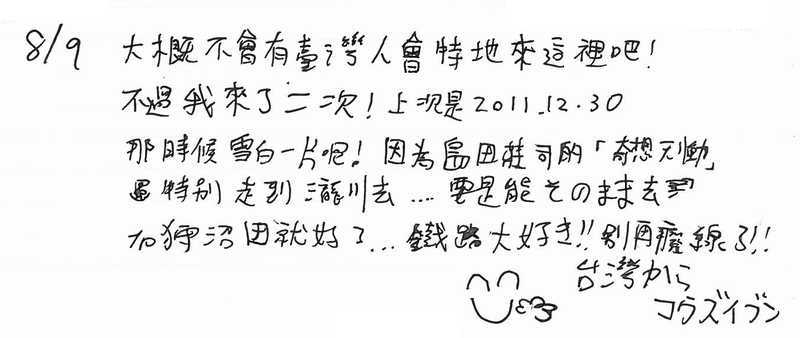 8/9 大概不會有臺灣人會特地來這裡吧!
不過我來了二次!上次是2011.12.30
那時候雪白一片呢!因為島田莊司的「奇想天動」
還特別走到瀧川去....要是能そのまま去到
沼田就好了...鐵路大好き!!別再廢線了!!
台灣から
コウズイブン